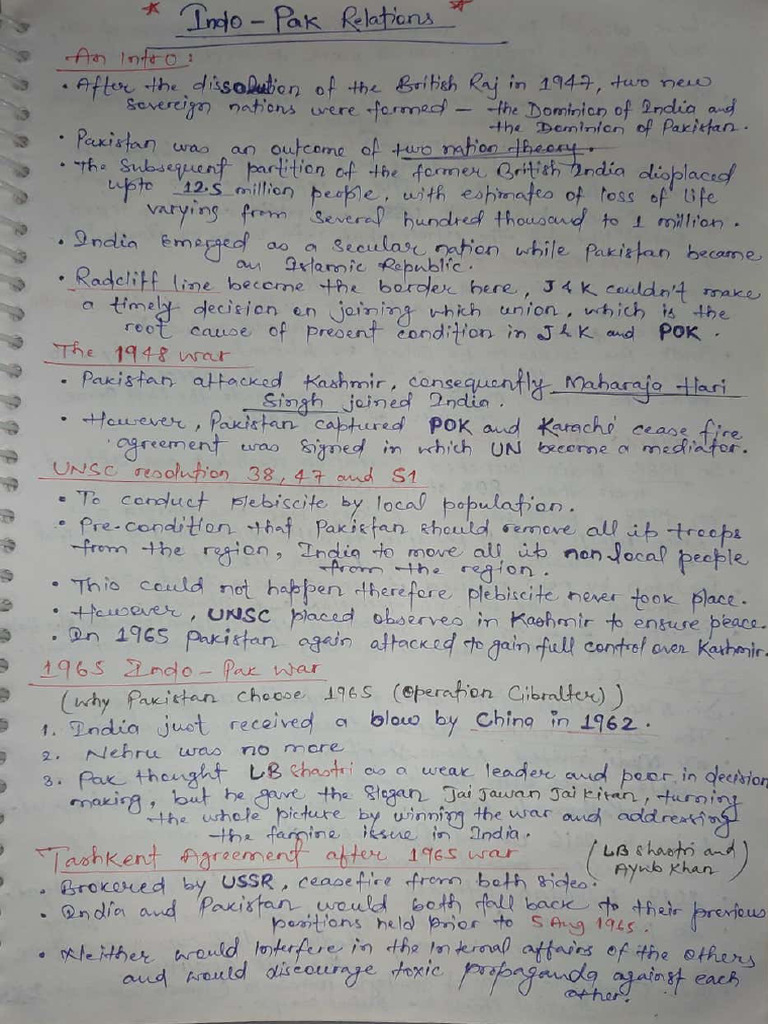 Indo-Pak Relations
An Intro:
• After the dissolution of the British Raj in 1947, two new
sovereign nations were formed - the Dominion of India and
the Dominion of Pakistan.
• Pakistan was an outcome of two nation theory.
• The subsequent partition of the former British India displaced
upto 12.5 million people, with estimates of loss of life
varying from several hundred thousand to 1 million.
• India emerged as a secular nation while Pakistan became
an Islamic Republic.
• Radcliff line become the border here, J & K couldn't make
a timely decision on joining which union, which is the
root cause of present condition in J & K and POK.
The 1948 war
• Pakistan attacked Kashmir, consequently Maharaja Hari
Singh joined India.
• However, Pakistan captured POK and Karachi cease fire
agreement was signed in which UN become a mediator.
UNSC resolution 38, 47 and 51
• To conduct plebiscite by local population.
• Pre-condition that Pakistan should remove all its troops
from the region, India to move all its non local people
from the region.
• This could not happen therefore plebiscite never took place.
• However, UNSC placed observes in Kashmir to ensure peace.
• In 1965 Pakistan again attacked to gain full control over Kashmir.
1965 Indo-Pak war
(why Pakistan choose 1965 (Operation Gibralter))
1. India just received a blow by China in 1962.
2. Nehru was no more
3. Pak thought LB Shastri as a weak leader and poor in decision
making, but he gave the slogan Jai Jawan Jai Kisan, turning
the whole picture by winning the war and addressing
the famine issue in India.
Tashkent Agreement after 1965 war (LB Shastri and
Ayub Khan)
• Brokered by USSR, ceasefire from both sides.
• India and Pakistan would both fall back to their previous
positions held prior to 5 Aug 1965.
• Neither would interfere in the internal affairs of the others
and would discourage toxic propaganda against each
other.